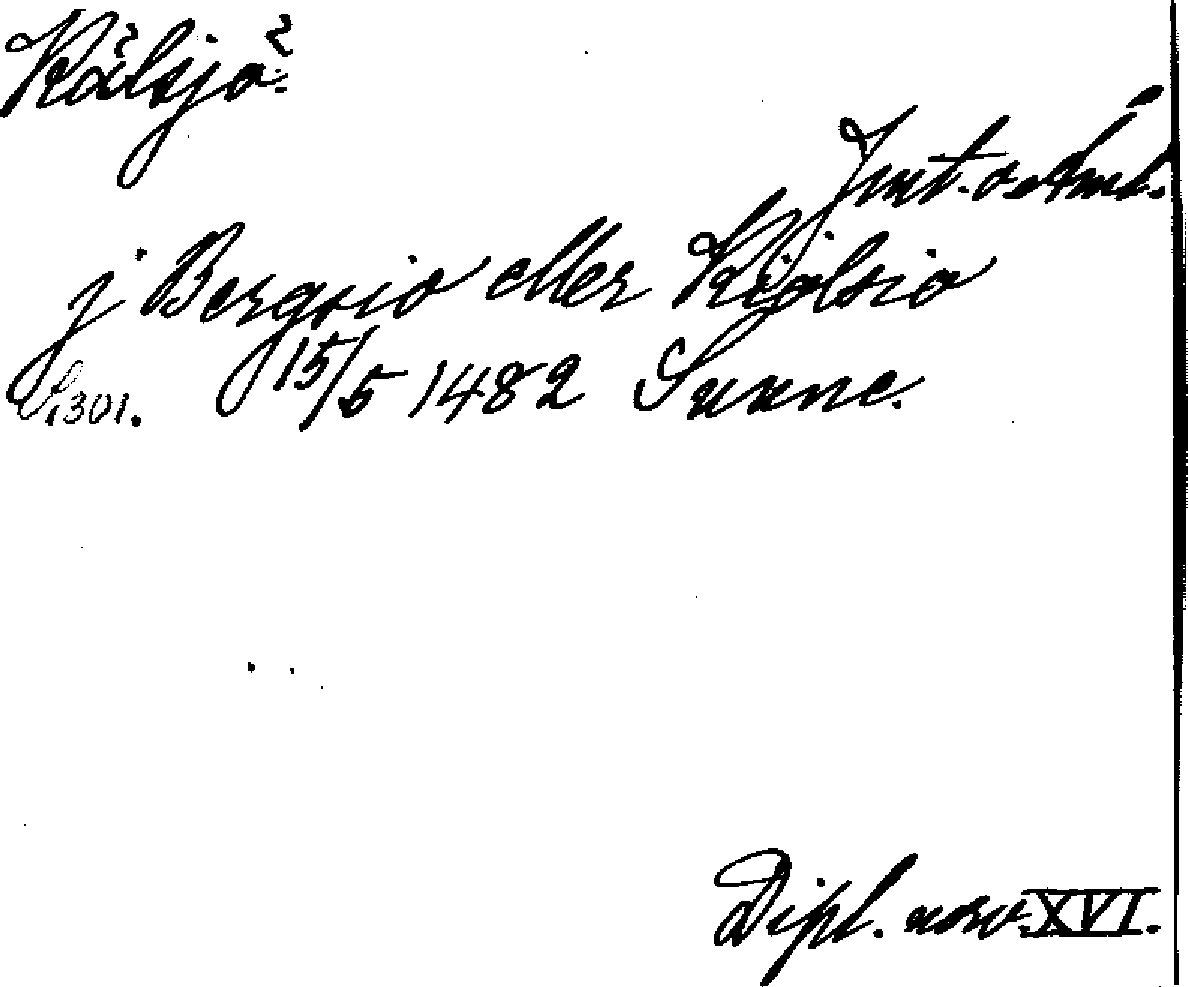 Kälsjö
Jmt. o. Åmt.
j Bergsio eller Kiølsio
S. 301. 15/5 1482 Sunne.
Dipl. norv. XVI.